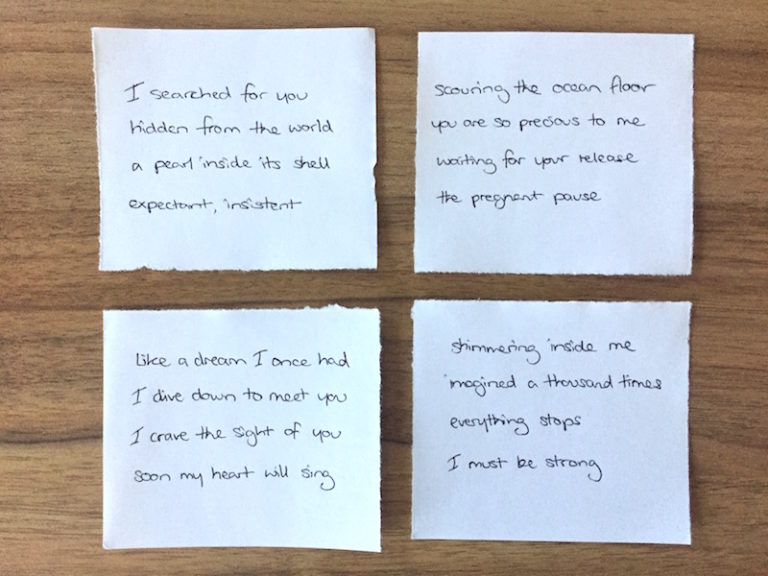 I searched for you
hidden from the world
a pearl inside its shell
expectant, insistent
scouring the ocean floor
you are so precious to me
waiting for your release
the pregnant pause
Like a dream I once had
I dive down to meet you
I crave the sight of you
soon my heart will sing
shimmering inside me
imagined a thousand times
everything stops
I must be strong